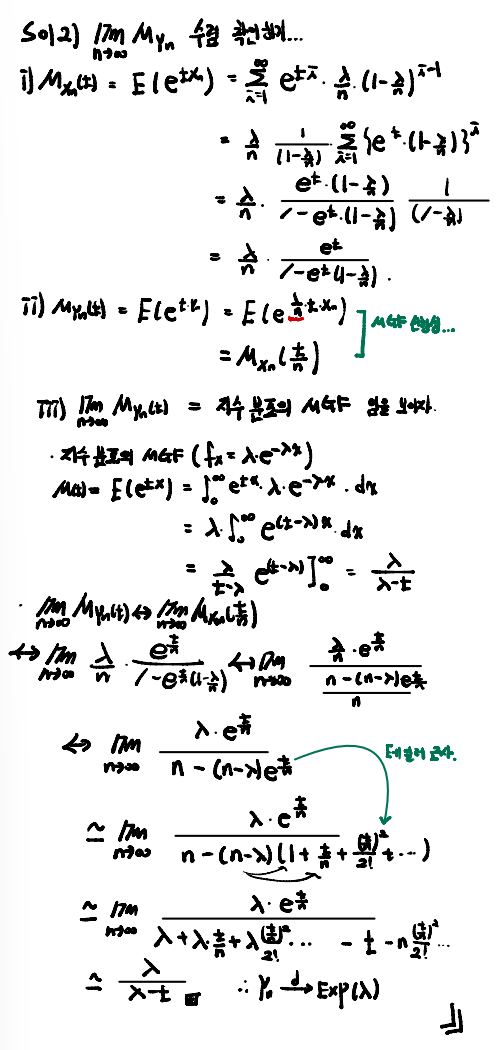 sol2) lim_{n→∞} M_{Y_n} 수렴 확인하기...
i) M_{X_n}(t) = E(e^{tX_n}) = Σ_{i=1}^{∞} e^{ti} · λ/n · (1-λ/n)^{i-1}
= λ/n · 1/(1-λ/n) · Σ_{i=1}^{∞} {e^t·(1-λ/n)}^i
= λ/n · e^t·(1-λ/n) / 1-e^t·(1-λ/n) · 1/(1-λ/n)
= λ/n · e^t / 1-e^t(1-λ/n) .
ii) M_{Y_n}(t) = E(e^{t·Y_n}) = E(e^{λ/n·t·X_n}) MGF ...
= M_{X_n}(t/n)
iii) lim_{n→∞} M_{Y_n}(t) = 지수 분포의 MGF 임을 보이자.
· 지수분포의 MGF (f_x = λ·e^{-λx})
M(t) = E(e^{tx}) = ∫_0^∞ e^{tx}·λ·e^{-λx} · dx
= λ·∫_0^∞ e^{(t-λ)x} · dx
= λ/t-λ e^{(t-λ)} ]_0^∞ = λ/λ-t
· lim_{n→∞} M_{Y_n}(t) ↔ lim_{n→∞} M_{X_n}(t/n)
↔ lim_{n→∞} λ/n · e^{t/n} / 1-e^{t/n}(1-λ/n) ↔ lim_{n→∞} λ/n · e^{t/n} / n-(n-λ)e^{t/n} / n
↔ lim_{n→∞} λ·e^{t/n} / n-(n-λ)e^{t/n} 테일러 근사.
≃ lim_{n→∞} λ·e^{t/n} / n-(n-λ)(1+t/n+(t/n)^2/2!+...)
≃ lim_{n→∞} λ·e^{t/n} / λ+λ·t/n+λ(t/n)^2/2!... -t -n(t/n)^2/2!...
≃ λ/λ-t ∴ Y_n →^d Exp(λ)